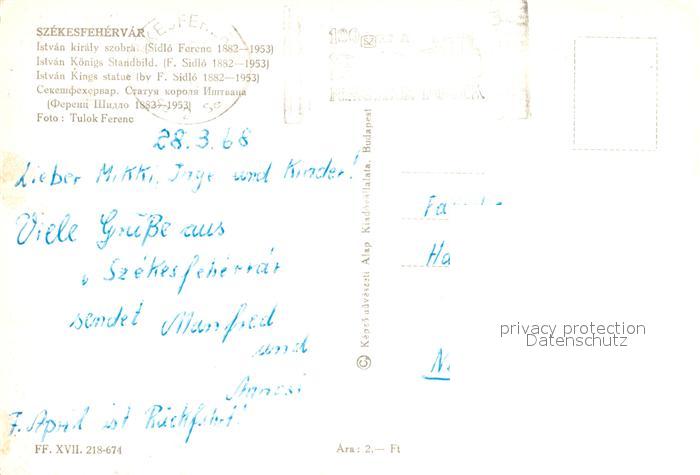 SZÉKESFEHÉRVÁR
István király szobra. (Sidló Ferenc 1882—1953)
István Königs Standbild. (F. Sidló 1882—1953)
István Kings statue (by F. Sidló 1882—1953)
Секешфехервар. Статуя короля Иштвана
(Ференц Шидло 1882—1953)
Foto: Tulok Ferenc
28.3.68
Lieber Mikki, Inge und Kinder!
Viele Grüße aus
Székesfehérvár
sendet Manfred
und
7. April ist Rückfahrt!
FF. XVII. 218-674
© Képzőművészeti Alap Kiadóvállalata, Budapest
Ha
N
privacy protection
Datenschutz
Ára: 2,— Ft